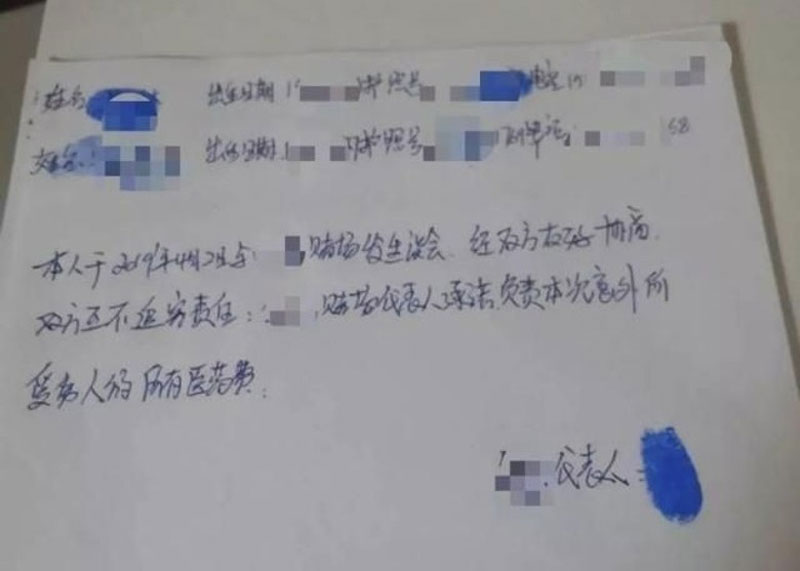 姓名 出生日期 护照号 电话
姓名: 出生日期: 护照号 电话: 58
本人于2019年4月2日与 赌场发生误会. 经双方友好协商.
双方互不追究责任: . 赌场代表人承诺负责本次意外所
受伤人的所有医药费.
代表人